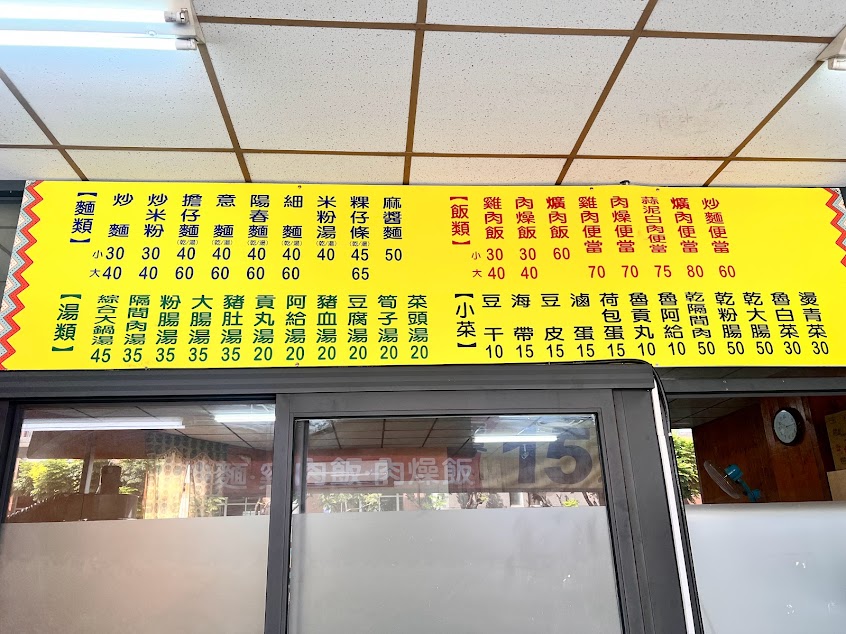 【麵類】
炒麵 小30 大40
炒米粉 30 40
擔仔麵(乾/湯) 40 60
意麵(乾/湯) 40 60
陽春麵(乾/湯) 40 60
細麵(乾/湯) 40 60
米粉湯(乾/湯) 40
粿仔條(乾/湯) 45 65
麻醬麵 50
【飯類】
雞肉飯 小30 大40
肉燥飯 30 40
爌肉飯 60
雞肉便當 70
肉燥便當 70
蒜泥白肉便當 75
爌肉便當 80
炒麵便當 60
【湯類】
綜合大鍋湯 45
隔間肉湯 35
粉腸湯 35
大腸湯 35
豬肚湯 35
貢丸湯 20
阿給湯 20
豬血湯 20
豆腐湯 20
筍子湯 20
菜頭湯 20
【小菜】
豆干 10
海帶 15
豆皮 15
滷蛋 15
荷包蛋 15
魯貢丸 10
魯阿給 10
乾隔間肉 50
乾粉腸 50
乾大腸 50
魯白菜 30
燙青菜 30
肉飯·肉燥飯
15